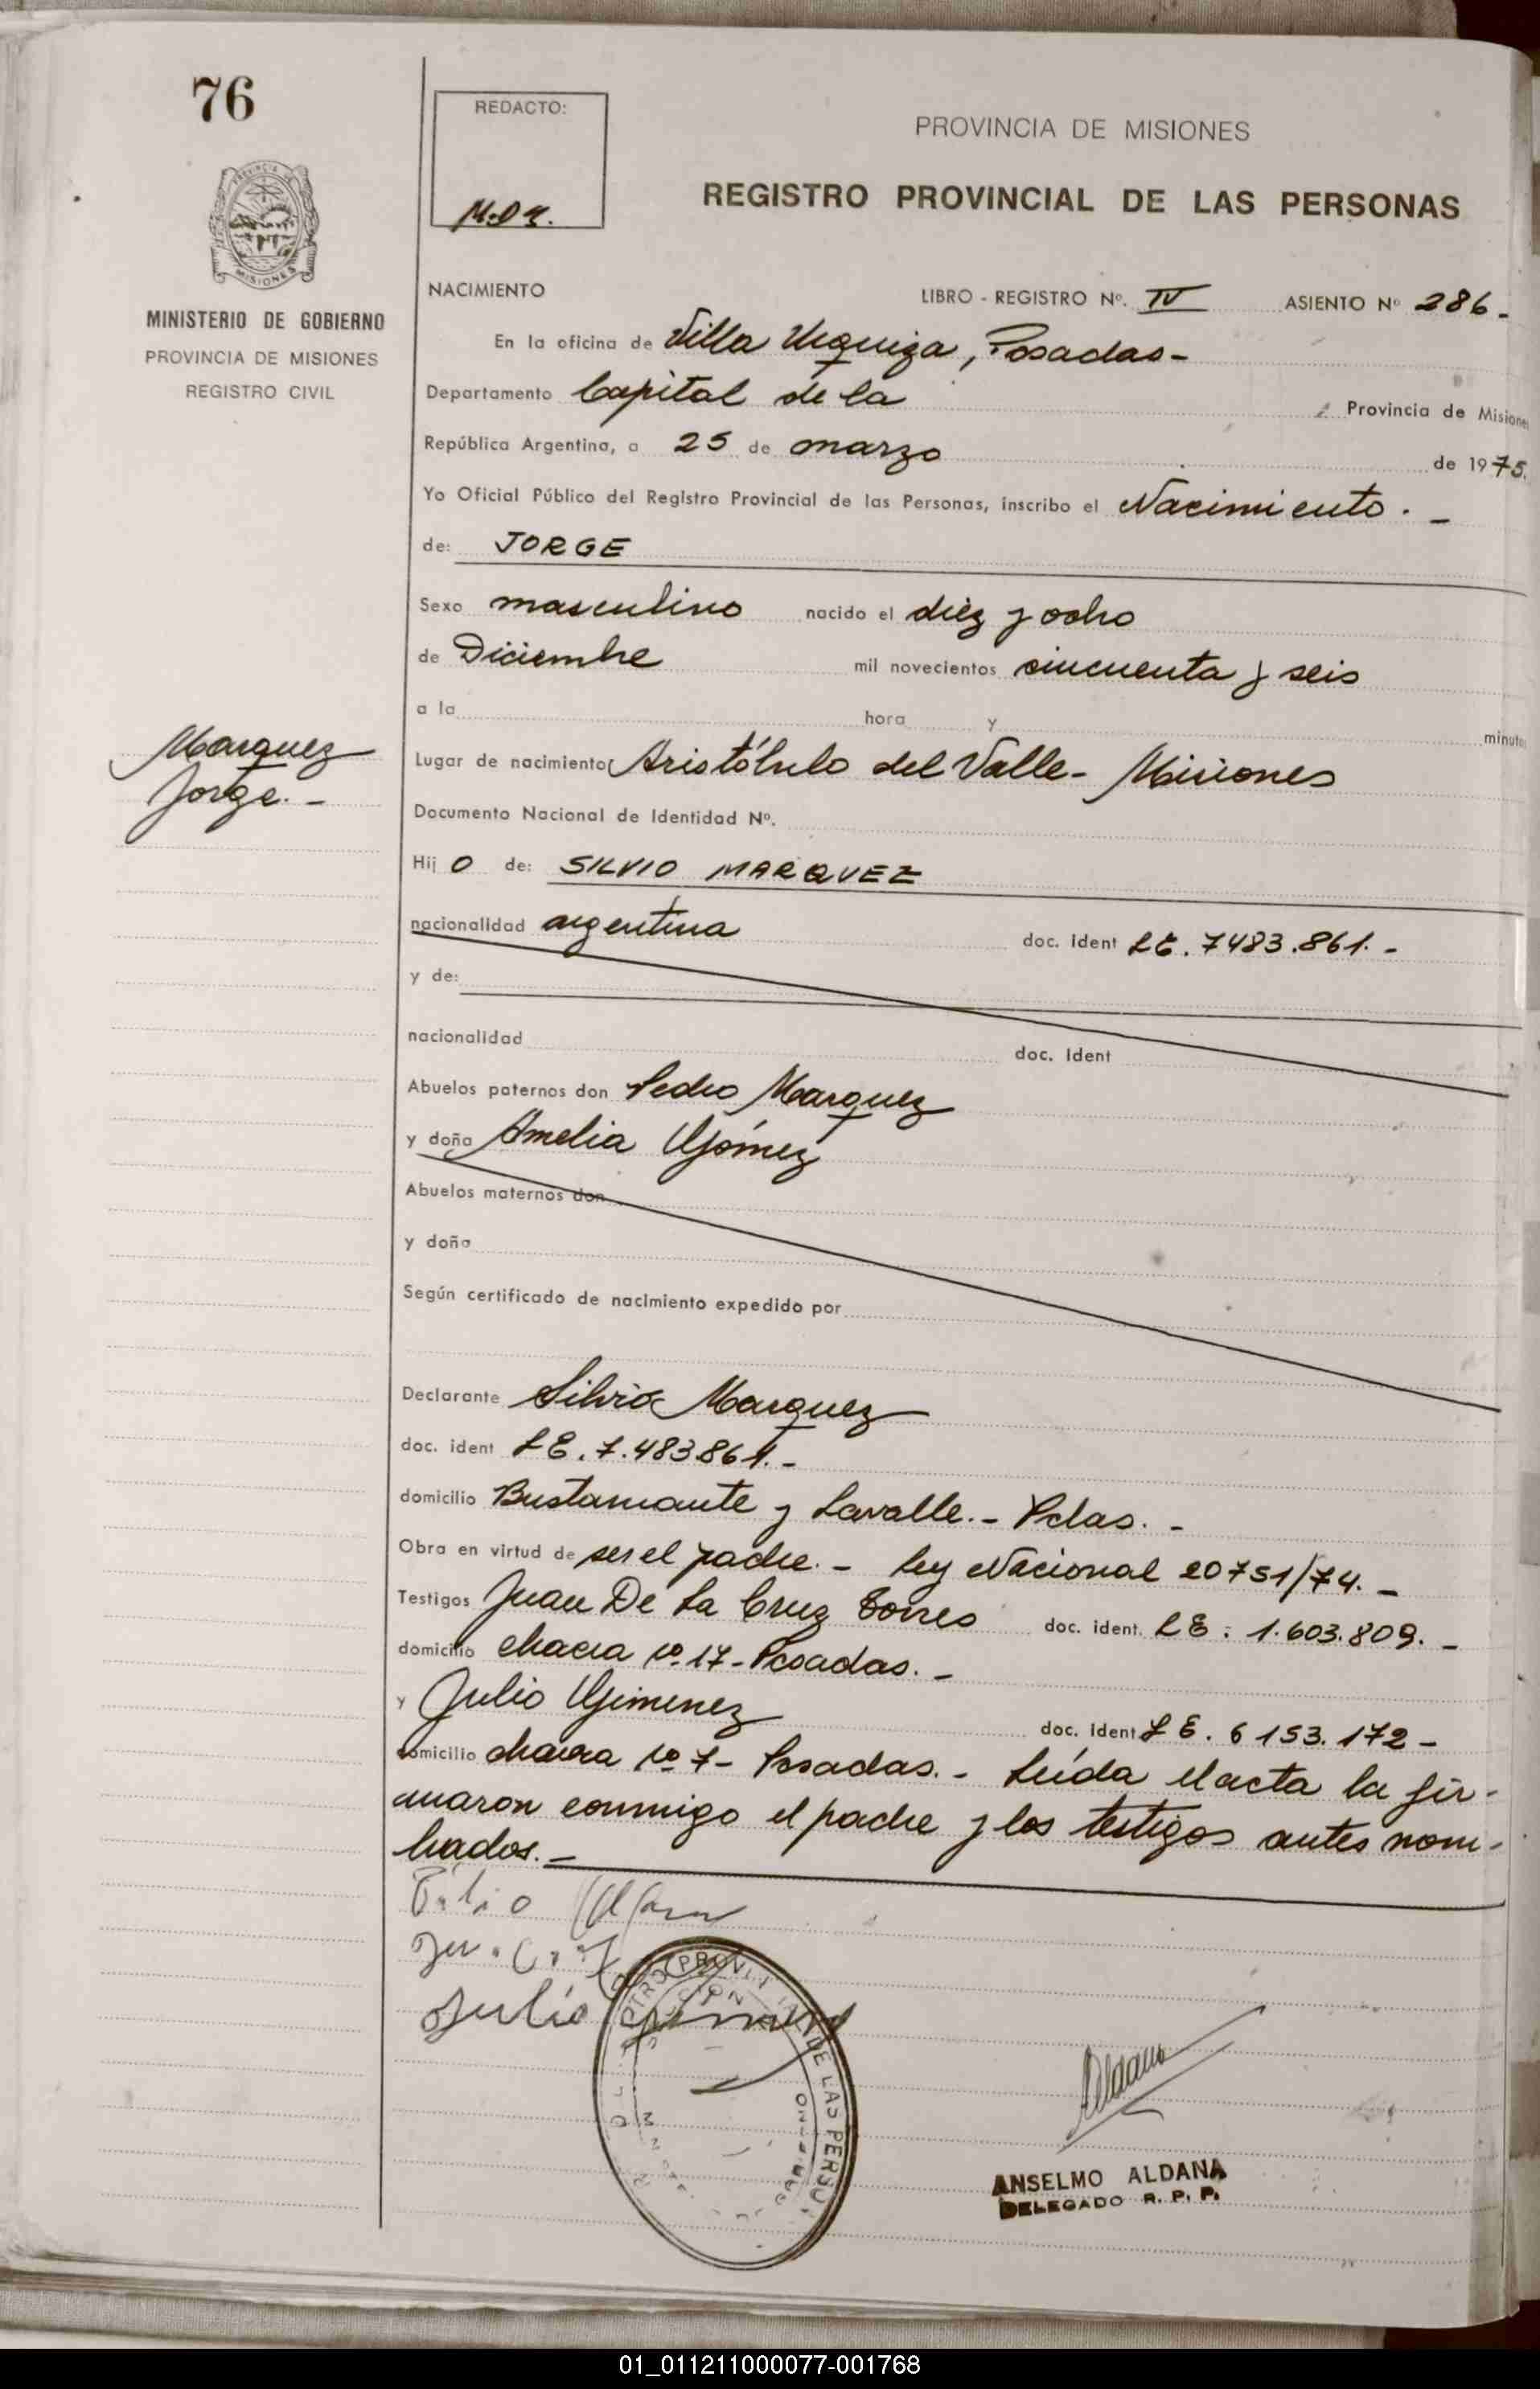 76
REDACTO:
PROVINCIA DE MISIONES
REGISTRO PROVINCIAL DE LAS PERSONAS
MISIONES
MINISTERIO DE GOBIERNO
PROVINCIA DE MISIONES
REGISTRO CIVIL
NACIMIENTO LIBRO - REGISTRO Nº. IV ASIENTO Nº 286.-
En la oficina de Villa Urquiza, Posadas-
Departamento Capital de la Provincia de Misiones
República Argentina, a 25 de marzo de 1975.
Yo Oficial Público del Registro Provincial de las Personas, inscribo el Nacimiento.-
de: JORGE
Sexo masculino nacido el diez y ocho
de Diciembre mil novecientos cincuenta y seis
a la hora y minutos
Marquez
Jorge.-
Lugar de nacimiento Aristóbulo del Valle- Misiones
Documento Nacional de Identidad Nº.
Hijo de: SILVIO MARQUEZ
nacionalidad argentina doc. ident LE. 7483.861.-
y de:
nacionalidad doc. ident
Abuelos paternos don Pedro Marquez
y doña Amelia Gómez
Abuelos maternos don
y doña
Según certificado de nacimiento expedido por
Declarante Silvio Marquez
doc. ident LE. 7.483861.-
domicilio Bustamante y Lavalle.- Pdas.-
Obra en virtud de ser el padre.- Ley Nacional 20751/74.-
Testigos Juan De La Cruz Torres doc. ident. LE. 1.603.809.-
domicilio chacra nº 17- Posadas.-
y Julio Gimenez doc. ident LE. 6153.172-
domicilio chacra nº 7- Posadas.- Leída el acta la fir-
maron conmigo el padre y los testigos antes nom-
brados.-
Julio
ANSELMO ALDANA
DELEGADO R. P. P.
01_011211000077-001768